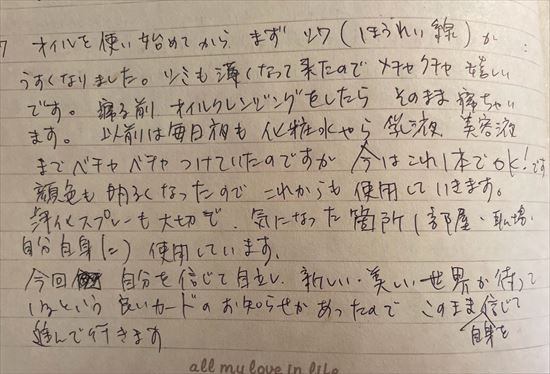 オイルを使い始めてから まず シワ(ほうれい線)が
うすくなりました。シミも薄くなって来たので メチャクチャ 嬉しい
です。 寝る前 オイルクレンジングをしたら そのまま 寝ちゃい
ます。 以前は毎日朝も 化粧水やら 乳液 美容液
まで ベチャベチャ つけていたのですが 今はこれ1本でOK!です
顔色も 明るくなったので これからも 使用していきます。
浄化スプレーも大切で、気になった箇所(部屋・職場・
自分自身に)使用しています。
今回 自分を信じて自立し、新しい・美しい世界が待って
いるという 良いカードのお知らせがあったので このまま信じて
自身を
進んで行きます
all my love in life